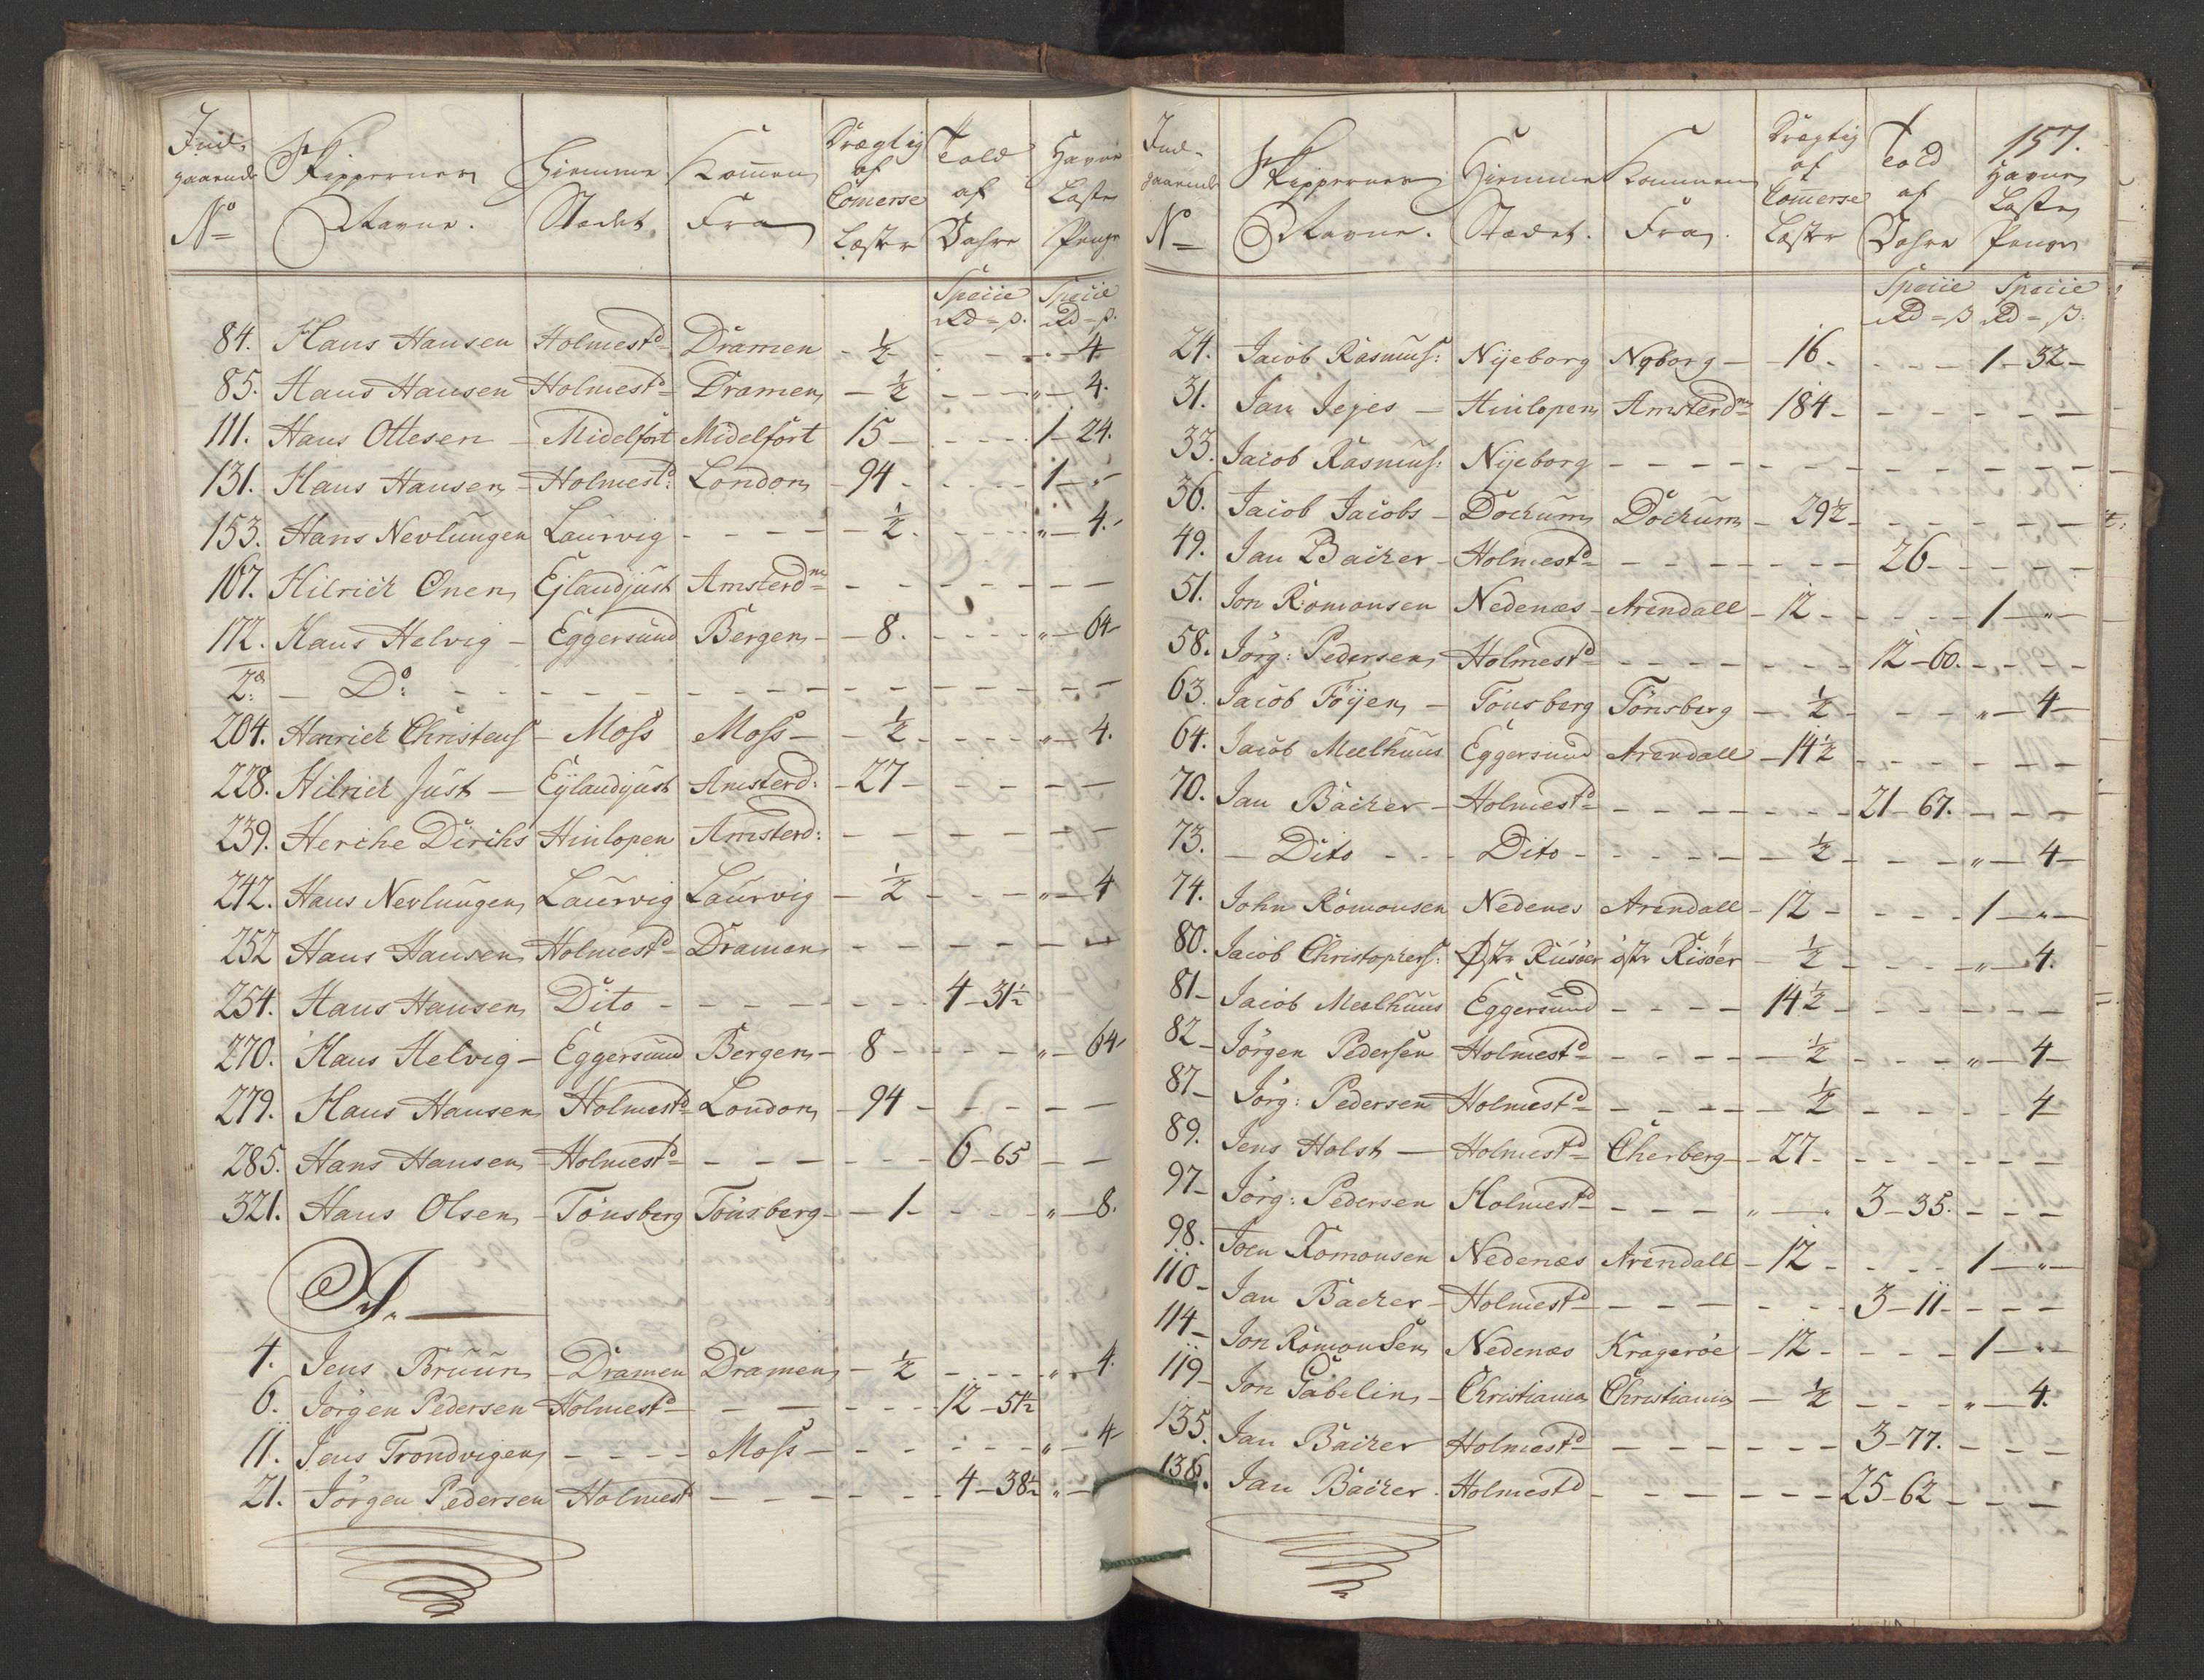 Ind-
gaaende
No
Skippernes
Navne.
Hiemme
Stædet
Kommen
Fra
Drægtig
af
Comerse
Læster
Told
af
Vahre
Havne
Laste
Penge
Specie
Rd = s.
Specie
Rd = s.
84. Hans Hansen Holmestd Dramen - ½ - - - " - 4
85. Hans Hansen Holmestd Dramen - ½ - - - " - 4.
111. Hans Ottesen - Midelfort Midelfort 15 - - - - 1 - 24.
131. Hans Hansen - Holmestd: London - 94 - - - - 1 - "
153. Hans Nevlungen Laurvig - - - - - ½ - - - " - 4. -
167. Hilrich Onen Ejlandjust Amsterdm - - - - - -
172. Hans Helvig - Eggersund Bergen - - 8. - - - - " - 64 -
- Do: - - - - - - - - - - - -
204. Henrich Christens - Moss Moss - - ½ - - - - " - 4.
228. Hilrich Just - Eylandjust Amsterd: - 27 - - - - -
239. Herche Dirchs Hinlopen Amsterd: - - - - - -
242. Hans Nevlungen Laurvig Laurvig - ½ - - - - " - 4
252 Hans Hansen Holmestd Dramen - - - - - -
254. Hans Hansen Dito - - - - - - - - 4 - 31½
270. Hans Helvig - Eggersund Bergen - 8 - - - - " - 64 -
279. Hans Hansen Holmestd London - 94 - - - - -
285. Hans Hansen - Holmestd - - - - - - 6 - 65 - -
321. Hans Olsen - Tönsberg Tönsberg - - 1 - - - - " - 8.
J. -
4. Jens Bruun - Dramen Dramen - ½ - - - - " - 4.
6. Jörgen Pedersen Holmestd - - - - - - 12 - 5½
11. Jens Trondvigen - - - - Moss - - - - - - - " - 4 -
21. Jörgen Pedersen Holmestd - - - - - - 4 - 38½ " -
157.
Ind-
gaaende
No
Skippernes
Navne.
Hiemme
Stædet.
Kommen
Fra.
Drægtig
af
Comerse
Læster
Told
af
Vahre
Havne
Laste
Penge
Specie
Rd = s
Specie
Rd = s.
24. Jacob Rasmus: Nijeborg Nyborg - 16 - - - - 1 - 32 -
31. Jan Jejes - Hinlopen Amsterdm 184 - - - - - -
33. Jacob Rasmus: Nijeborg - - - - - - - - - - -
36. Jacob Jacobs - Dockum Dockum - 29½ - - - - - -
49. Jan Backer - Holmestd - - - - - - - 26 - - - - -
51. Jon Romonsen Nedenæs - Arendall - 12 - - - - 1 - " -
58. Jörg: Pedersen Holmestd - - - - - - - 12 - 60. - - - -
63. Jacob Föyen - Tönsberg Tönsberg - ½ - - - " - 4 -
64. Jacob Meelhuus Eggersund Arendall - 14½ - - - - - -
70. Jan Backer - Holmestd - - - - - - - 21 - 67. - - -
73. - Dito - - - Dito - - - - - - ½ - - - " - 4 -
74. John Romonsen Nedenes Arendall - 12 - - - - 1 - " -
80. Jacob Christophers: Østr Riisöer östr Risöer - ½ - - - - " - 4.
81 - Jacob Meelhuus Eggersund - - - - 14½ - - - - - -
82 - Jörgen Pedersen Holmestd - - - - - ½ - - - " - 4 -
87 - Jörg: Pedersen Holmestd - - - - - ½ - - - - - 4
89. Jens Holst - Holmestd Cherberg - - 27 - - - - - - -
97 - Jörg: Pedersen Holmestd - - - - " - " 3 - 35. - - -
98. Joen Romonsen Nedenæs Arendall - 12 - - - - 1 - " -
110 - Jan Backer - Holmestd - - - - - - 3 - 11 - - - -
114 - Jon Romonsen Nedenæs Krageröe - 12 - - - - 1 - " -
119 - Jon Gabelin - Christiania Christiania - ½ - - - " - 4.
135. Jan Backer Holmestd - - - - - - 3 - 77. - - -
138. Jan Backer. Holmestd - - - - - - 25 - 62 - - - -